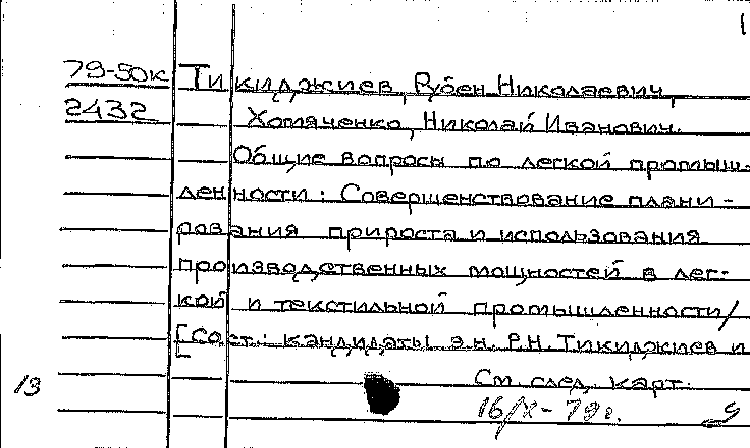 1
79-50к Тикиджиев, Рубен Николаевич,
2432 Хомяченко, Николай Иванович.
Общие вопросы по легкой промыш-
ленности: Совершенствование плани-
рования прироста и использования
производственных мощностей в лег-
кой и текстильной промышленности/
[Сост.: кандидаты э.н. Р.Н. Тикиджиев и
См. след. карт.
13
16/X-79г.